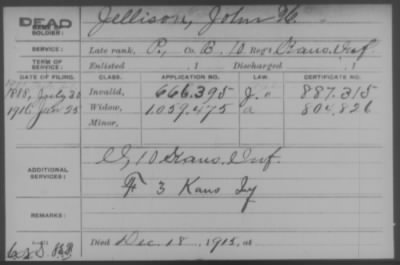 DEAD Jellison, John H.
NAME OF
SOLDIER:
SERVICE: Late rank, P, Co. B, 10 Reg't Kans. Inf.
TERM OF
SERVICE: Enlisted , 1 Discharged , 1
DATE OF FILING. CLASS. APPLICATION NO. LAW. CERTIFICATE NO.
1888, July 30 Invalid, 666.395 J. 887.315
1916 Jan 25 Widow, 1.059.475 a 804.826
Minor,
ADDITIONAL
SERVICES:
C, 10 Kans. Inf.
F 3 Kans Inf
REMARKS:
Died Dec. 18, 1915, at